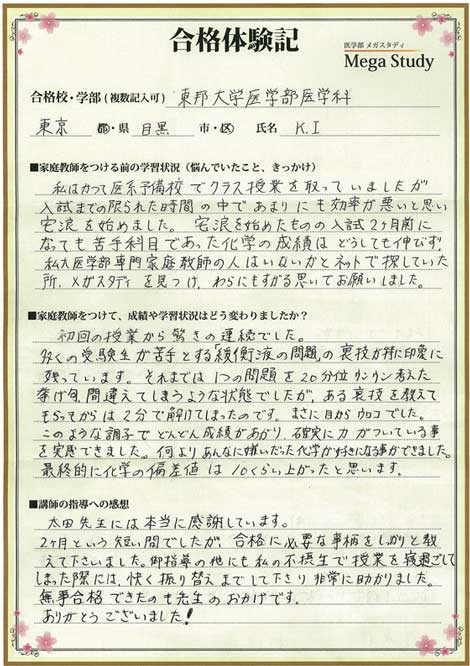 合格体験記
医学部 メガスタディ
Mega Study
合格校・学部(複数記入可) 東邦大学医学部医学科
東京 都・県 目黒 市・区 氏名 K.I
■家庭教師をつける前の学習状況（悩んでいたこと、きっかけ）
私はかつて医系予備校でクラス授業を取っていましたが
入試までの限られた時間の中であまりにも効率が悪いと思い
宅浪を始めました。宅浪を始めたものの入試2ヶ月前に
なっても苦手科目であった化学の成績はどうしても伸びず、
私大医学部専門家庭教師の人はいないかとネットで探していた
所、メガスタディを見つけ、わらにもすがる思いでお願いしました。
■家庭教師をつけて、成績や学習状況はどう変わりましたか？
初回の授業から驚きの連続でした。
多くの受験生が苦手とする緩衝液の問題の裏技が特に印象に
残っています。それまでは1つの問題を20分位ウンウン考えた
挙げ句、間違えてしまうような状態でしたが、ある裏技を教えて
もらってからは2分で解けてしまったのです。まさに目からウロコでした。
このような調子でどんどん成績があがり、確実に力がついている事
を実感できました。何よりあんなに嫌いだった化学が好きになる事ができました。
最終的に化学の偏差値は10くらい上がったと思います。
■講師の指導への感想
太田先生には本当に感謝しています。
2ヶ月という短い間でしたが、合格に必要な事柄をしっかりと教
えて下さいました。御指導の他にも私の不摂生で授業を寝過ごして
しまった際には、快く振り替えまでして下さり非常に助かりました。
無事合格できたのも先生のおかげです。
ありがとうございました!